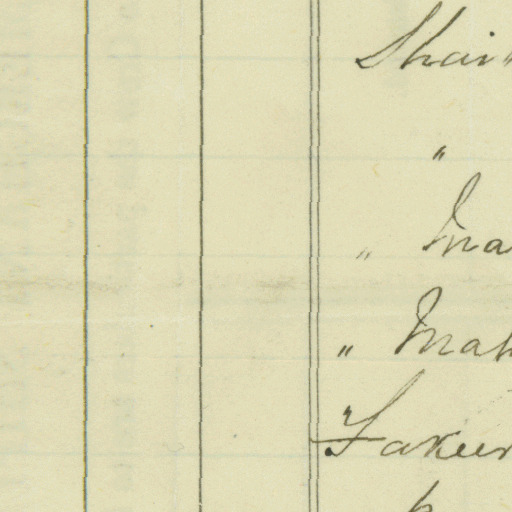 Shai
"
" Ma
" Mah
Fakeer